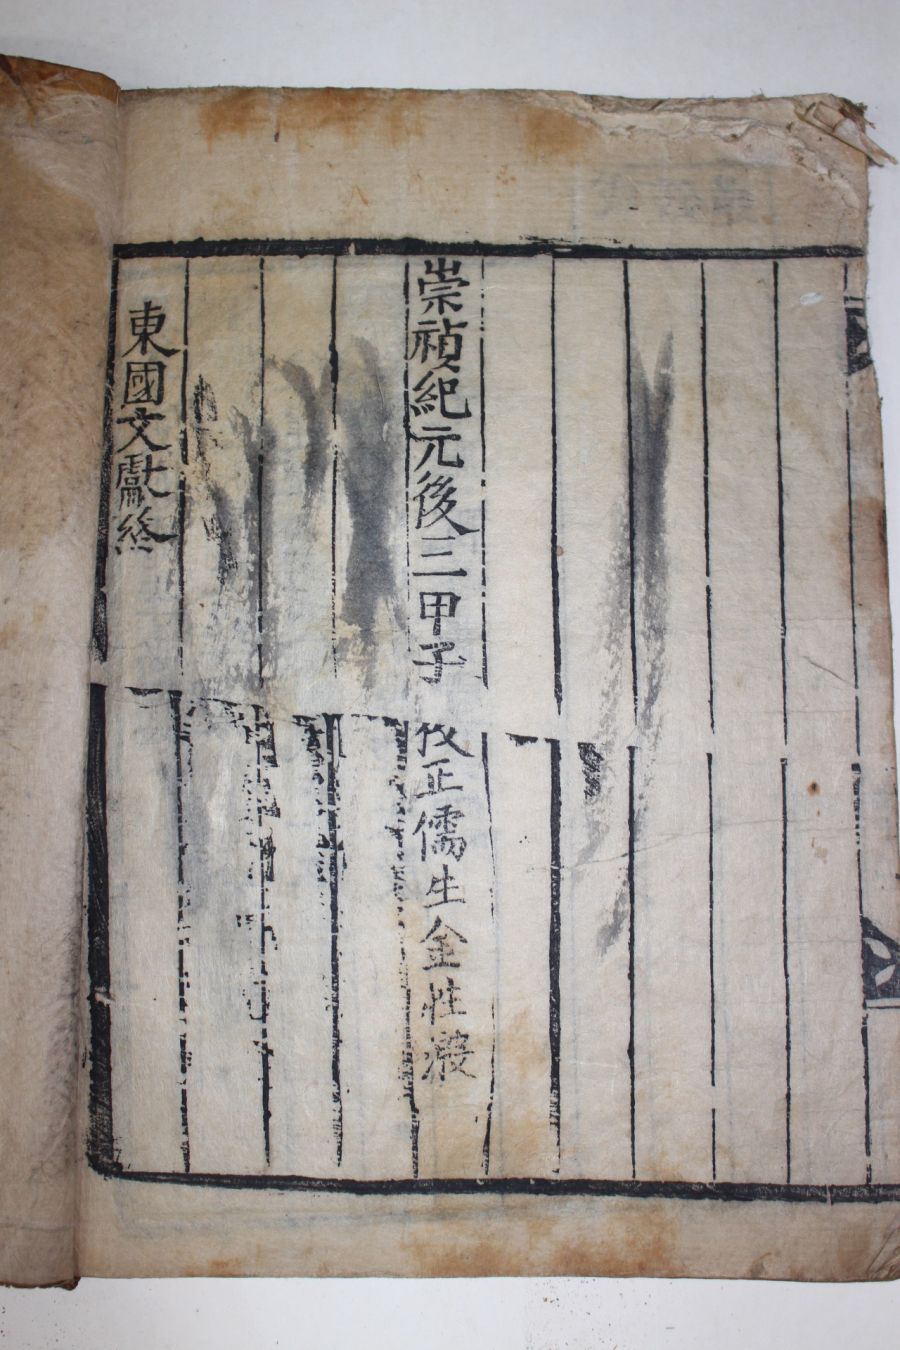 崇禎紀元後三甲子　攷正儒生金性溵
東國文獻終